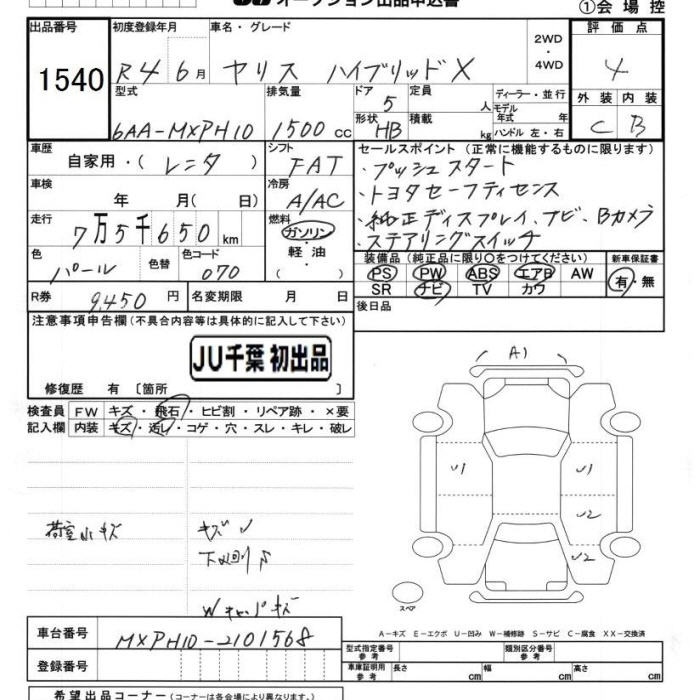 オークション出品申込書
①会場控
出品番号 1540
初度登録年月 R4 6月
車名・グレード ヤリス ハイブリッドX
2WD・4WD
評価点 4
外装 C 内装 B
型式 6AA-MXPH10
排気量 1500cc
ドア 5
形状 HB
定員 人
積載 kg
ディーラー・並行
モデル年式 年
ハンドル 左・右
車歴 自家用・(レンタ)
シフト FAT
車検 年 月(日)
冷房 A/AC
走行 7万5千650km
燃料 ガソリン・軽油・
色 パール 色替
色コード 070
R券 9,450円
名変期限 月 日
セールスポイント(正常に機能するものに限ります)
・プッシュスタート
・トヨタセーフティセンス
・純正ディスプレイ、ナビ、Bカメラ
・ステアリングスイッチ
装備品(純正品に限り○をつけてください)
新車保証書
PS PW ABS エアB AW
SR ナビ TV カワ
有・無
後日品
注意事項申告欄(不具合内容等は具体的に記入して下さい)
JU千葉 初出品
修復歴 有 〔箇所 〕
検査員記入欄
FW キズ・飛石・ヒビ割・リペア跡・×要
内装 キズ・汚レ・コゲ・穴・スレ・キレ・破レ
荷室小キズ
キズ
下回り
Wキャップキズ
A1
U1
U1
U2
U2
スペア
A-キズ E-エクボ U-凹み W-補修跡 S-サビ C-腐食 XX-交換済
車台番号 MXPH10-2101568
登録番号
型式指定番号 参考
類別区分番号 参考
車庫証明用 参考 長さ cm 幅 cm 高さ cm
希望出品コーナー(コーナーは各会場により異なります。)